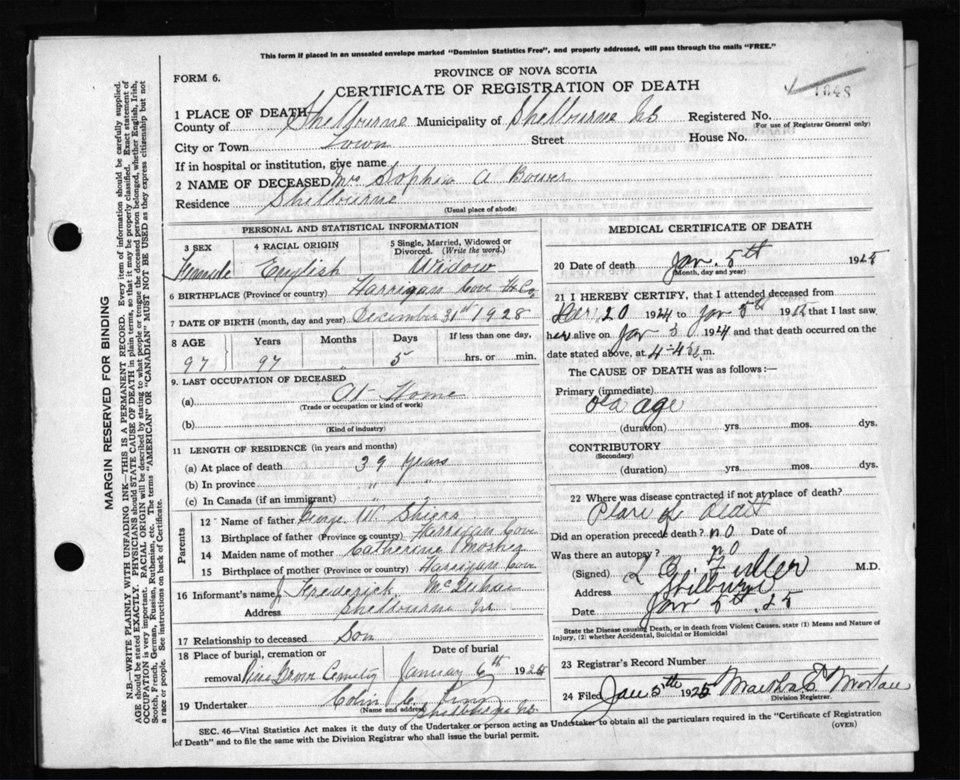 This form if placed in an unsealed envelope marked "Dominion Statistics Free", and properly addressed, will pass through the mails "FREE."
FORM 6.
PROVINCE OF NOVA SCOTIA
CERTIFICATE OF REGISTRATION OF DEATH
1848
1 PLACE OF DEATH
County of Shelburne Municipality of Shelburne NS Registered No.
(For use of Registrar General only)
City or Town Town Street House No.
If in hospital or institution, give name
2 NAME OF DECEASED Mrs Sophia A Bower
Residence Shelbourne
(Usual place of abode)
PERSONAL AND STATISTICAL INFORMATION
3 SEX 4 RACIAL ORIGIN 5 Single, Married, Widowed or Divorced. (Write the word.)
Female English Widow
6 BIRTHPLACE (Province or country) Harrigan Cove Hx Co
7 DATE OF BIRTH (month, day and year) December 31st 1928
8 AGE Years Months Days If less than one day,
97 97 " 5 hrs. or min.
9. LAST OCCUPATION OF DECEASED
(a) At Home
(Trade or occupation or kind of work)
(b)
(Kind of industry)
11 LENGTH OF RESIDENCE (in years and months)
(a) At place of death 39 Years
(b) In province " "
(c) In Canada (if an immigrant) " "
Parents
12 Name of father George W. Shiers
13 Birthplace of father (Province or country) Harrigan Cove
14 Maiden name of mother Catherine Mosher
15 Birthplace of mother (Province or country) Harrigan Cove
16 Informant's name J Frederick
Address Shelbourne NS
17 Relationship to deceased Son
18 Place of burial, cremation or removal Date of burial
Pine Grove Cemetery January 6th 1925
19 Undertaker Colin C. King
(Name and address) Shelbourne NS
MEDICAL CERTIFICATE OF DEATH
20 Date of death Jan. 5th 1925
(Month, day and year)
21 I HEREBY CERTIFY, that I attended deceased from
Dec 20 1924 to Jan 5th 1925 that I last saw
her alive on Jan 5 1924 and that death occurred on
date stated above, at m.
The CAUSE OF DEATH was as follows:—
Primary (immediate)
Old age
(duration) yrs. mos. dys.
CONTRIBUTORY
(Secondary)
(duration) yrs. mos. dys.
22 Where was disease contracted if not at place of death?
Place of death
Did an operation precede death? no Date of
Was there an autopsy? no
(Signed) L. O. Fuller M.D.
Address Shelburne
Date Jan 5th 25
State the Disease causing Death, or in death from Violent Causes, state (1) Means and Nature of Injury, (2) whether Accidental, Suicidal or Homicidal
23 Registrar's Record Number
24 Filed Jan 5th 1925 Martha E.
Division Registrar.
SEC. 46—Vital Statistics Act makes it the duty of the Undertaker or person acting as Undertaker to obtain all the particulars required in the "Certificate of Registration
of Death" and to file the same with the Division Registrar who shall issue the burial permit.
(OVER)
MARGIN RESERVED FOR BINDING
N.B.—WRITE PLAINLY WITH UNFADING INK—THIS IS A PERMANENT RECORD. Every item of information should be carefully supplied.
AGE should be stated EXACTLY. PHYSICIANS should STATE CAUSE OF DEATH in plain terms, so that it may be properly classified. Exact statement of
OCCUPATION is very important. RACIAL ORIGIN will be described by stating to what people or tongue the deceased person belonged, whether English, Irish,
Scotch, French, German, Russian, Ruthenian, etc. The terms "AMERICAN" or "CANADIAN" MUST NOT BE USED as they express citizenship but not
a race or people. See instructions on back of Certificate.